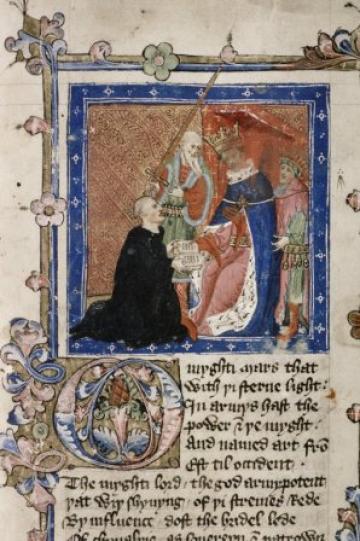 O myghti mars that
With þi sterne light :
In armys hast the
power & þe myght :
And named art fro
Est til occident
The myghti lord : the god armypotent
þat wiþ shynyng of þi stremes rede
By influence dost the bridel lede
Of chiualrie as souereyn & patrown